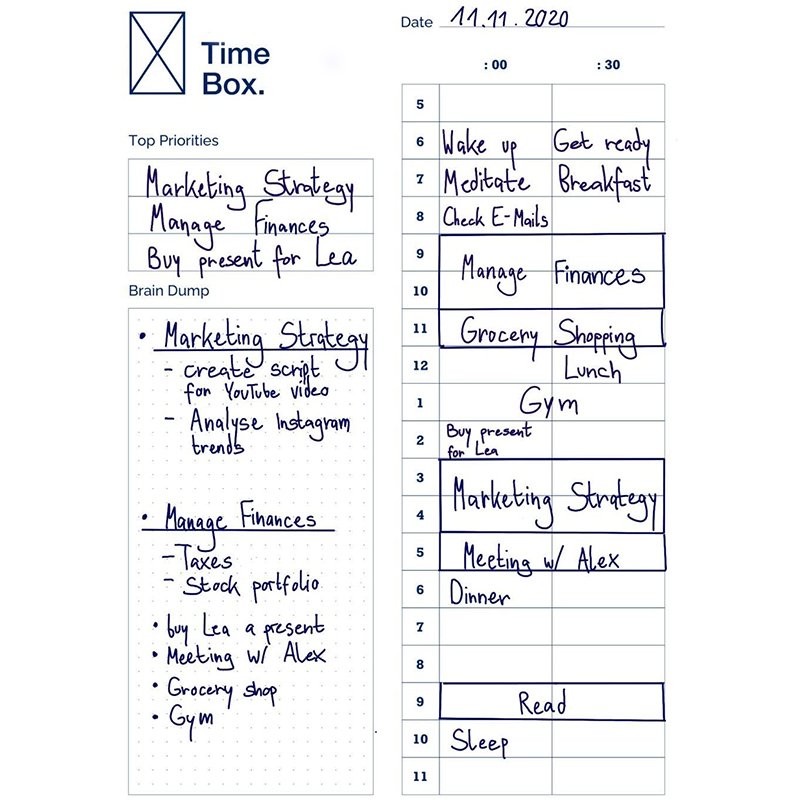 Time
Box.
Top Priorities
Marketing Strategy
Manage Finances
Buy present for Lea
Brain Dump
• Marketing Strategy
- create script
for YouTube video
- Analyse Instagram
trends
• Manage Finances
- Taxes
- Stock portfolio
• buy Lea a present
• Meeting w/ Alex
• Grocery shop
• Gym
Date 11.11.2020
:00 :30
5
6 Wake up Get ready
7 Meditate Breakfast
8 Check E-Mails
9
Manage Finances
10
11 Grocery Shopping
12 Lunch
1 Gym
2 Buy present
for Lea
3
Marketing Strategy
4
5 Meeting w/ Alex
6 Dinner
7
8
9 Read
10 Sleep
11